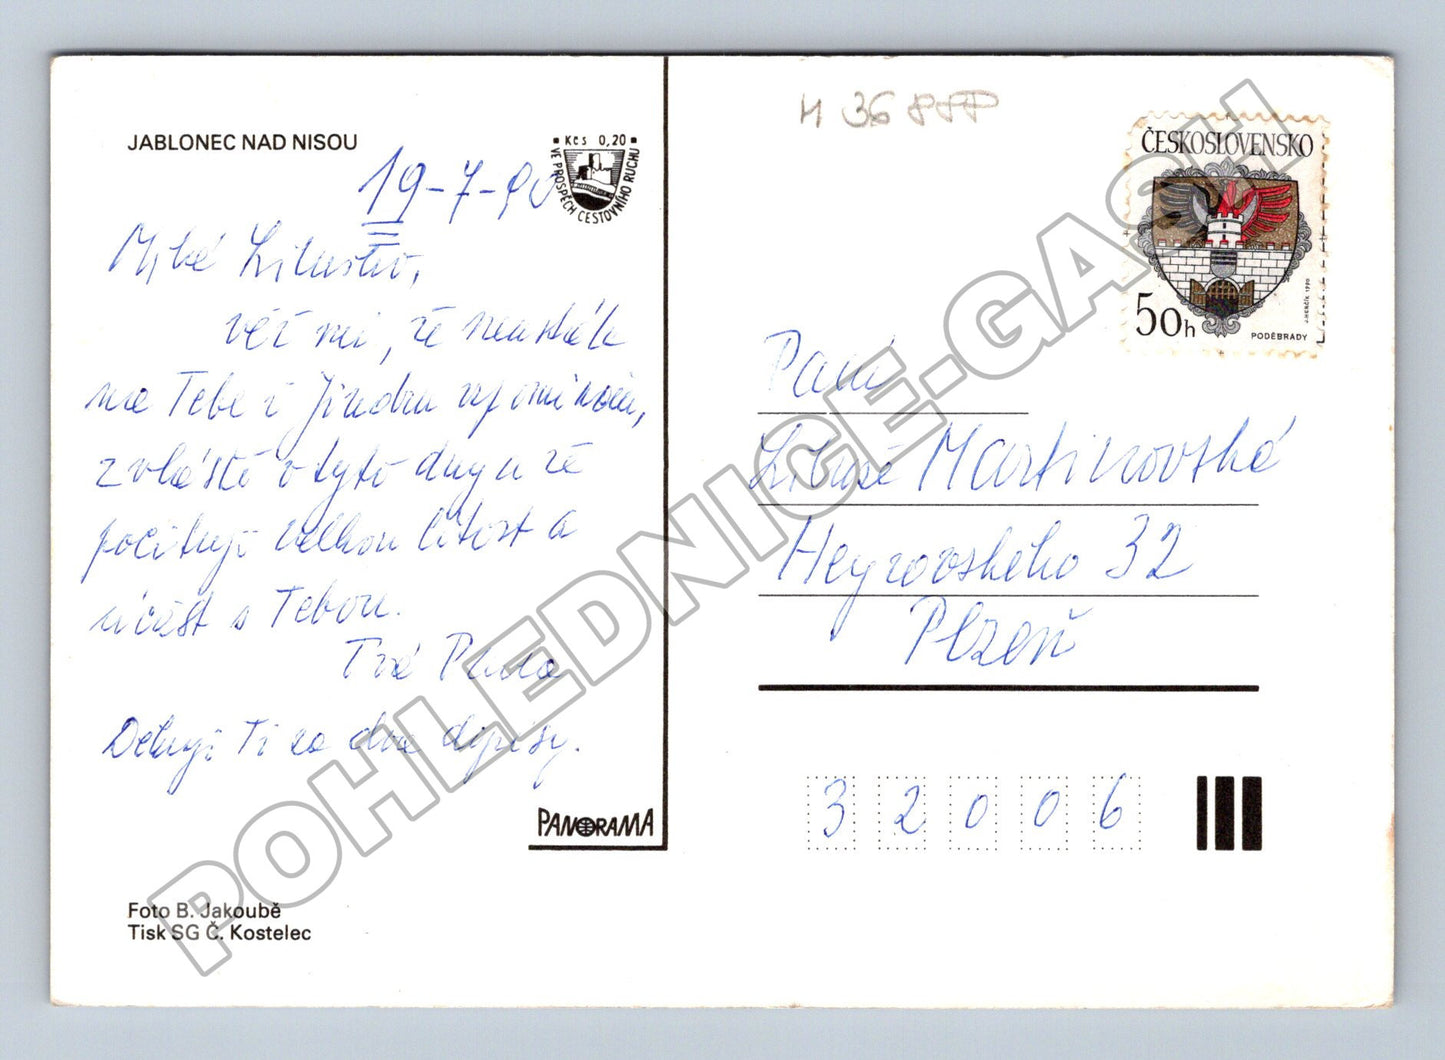 JABLONEC NAD NISOU
Kčs 0,20
VE PROSPĚCH CESTOVNÍHO RUCHU
19-7-90
Milá Libuško,
věř mi, že neustále
na Tebe i Jindru vzpomínám,
zvláště v tyto dny a že
pociťuji velkou lítost a
účast s Tebou.
Tvá Pavla
Děkuji Ti za dva dopisy.
PANORAMA
Foto B. Jakoubě
Tisk SG Č. Kostelec
M 36
ČESKOSLOVENSKO
50h
J. HERČÍK 1990
PODĚBRADY
Paní
Libuše Martinovská
Heyrovského 32
Plzeň
32006
POHLEDNICE-GASH